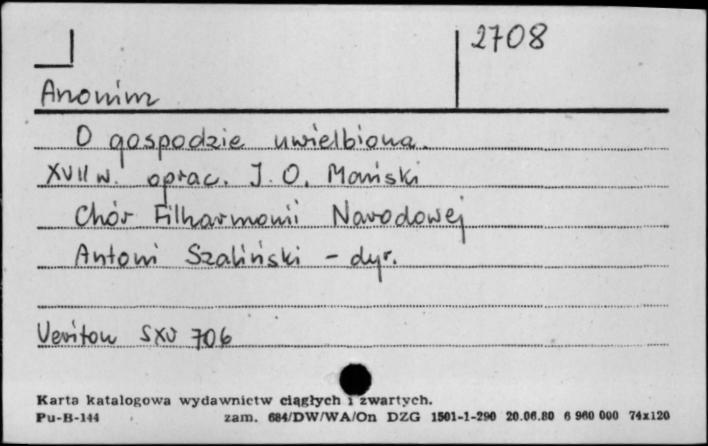 2708
Anonim
O gospodzie uwielbiona.
XVII w. oprac. J. O. Mański
Chór Filharmonii Narodowej
Antoni Szaliński - dyr.
Veriton SXV 706
Karta katalogowa wydawnictw ciągłych i zwartych.
Pu-B-144 zam. 684/DW/WA/On DZG 1501-1-290 20.06.80 6 960 000 74x120